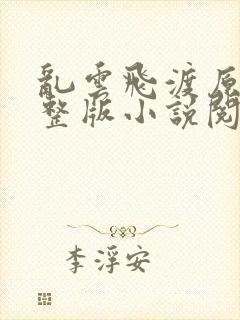 亂雲飛渡原
整版小說閱
李浮安